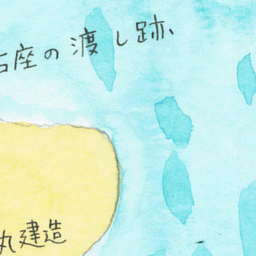 石座の渡し跡、
丸建造